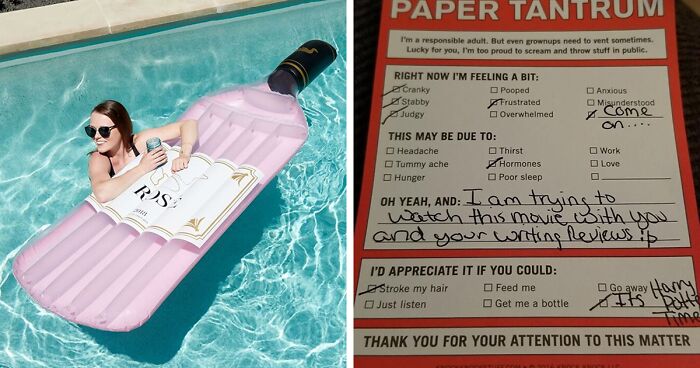 ROSÉ
2018
PAPER TANTRUM
I'm a responsible adult. But even grownups need to vent sometimes.
Lucky for you, I'm too proud to scream and throw stuff in public.
RIGHT NOW I'M FEELING A BIT:
Cranky Pooped Anxious
Stabby Frustrated Misunderstood
Judgy Overwhelmed Come
on....
THIS MAY BE DUE TO:
Headache Thirst Work
Tummy ache Hormones Love
Hunger Poor sleep
OH YEAH, AND: I am trying to
watch this movie with you
and your writing Reviews :p
I'D APPRECIATE IT IF YOU COULD:
Stroke my hair Feed me Go away
Just listen Get me a bottle Its Harry
Potter
Time
THANK YOU FOR YOUR ATTENTION TO THIS MATTER